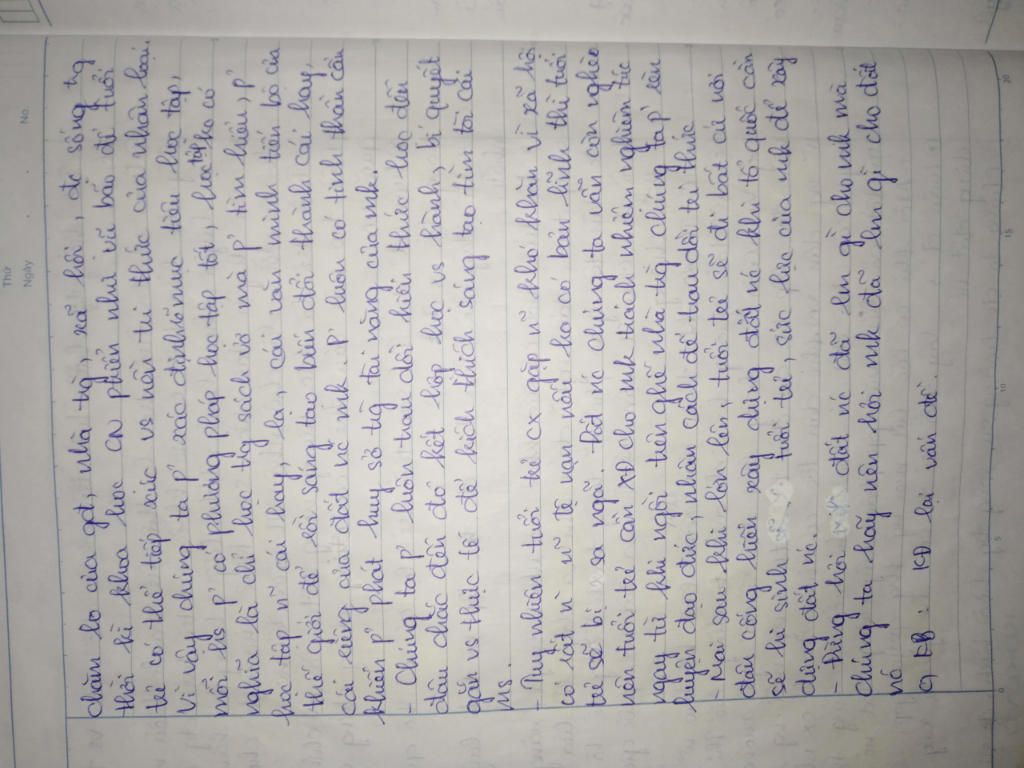 Thứ
Ngày
No.
chăm lo của gđ, nhà tg, xã hội, đc sống tg
thời kì khoa học CN phiền nhú vĩ bão để tuổi
trẻ có thể tiếp xúc vs nền tri thức của nhân loại.
Vì vậy chúng ta p' xác định mục tiêu học tập,
mỗi hs p' có phương pháp học tập tốt, học tập ko có
nghĩa là chỉ học tg sách vở mà p' tìm hiểu, p'
học tập n~ cái hay, lạ, cái văn minh tiến bộ của
thế giới để rồi sáng tạo biến đổi thành cái hay,
cái riêng của đất nc mk. p' luôn có tinh thần cầu
khiến p' phát huy sở tg tài năng của mk.
- Chúng ta p' luôn trau dồi kiến thức học đến
đâu chắc đến đó kết hợp học vs hành, lý quyết
gắn vs thực tế để kích thích sáng tạo tìm tòi cái
ms.
- Tuy nhiên tuổi trẻ cx gặp n~ khó khăn vì xã hội
có rất n` n~ tệ nạn nếu ko có bản lĩnh thì tuổi
trẻ sẽ bị sa ngã. Đất nc chúng ta vẫn còn nghèo
nên tuổi trẻ cần XĐ cho mk trách nhiệm nghiêm túc
ngay từ khi ngồi trên ghế nhà tg chúng ta p' rèn
luyện đạo đức, nhân cách để trau dồi tri thức
- Mai sau khi lớn lên, tuổi trẻ sẽ đi bất cứ nơi
đâu cống hiến xây dựng đất nc khi tổ quốc cần
sẽ hi sinh tuổi trẻ, sức lực của mk để xây
dựng đất nc.
- Đừng hỏi đất nc đã lm gì cho mk mà
chúng ta hãy nên hỏi mk đã lm gì cho đất
nc
c) KB: KĐ lại vấn đề.
0
5
10
15
20